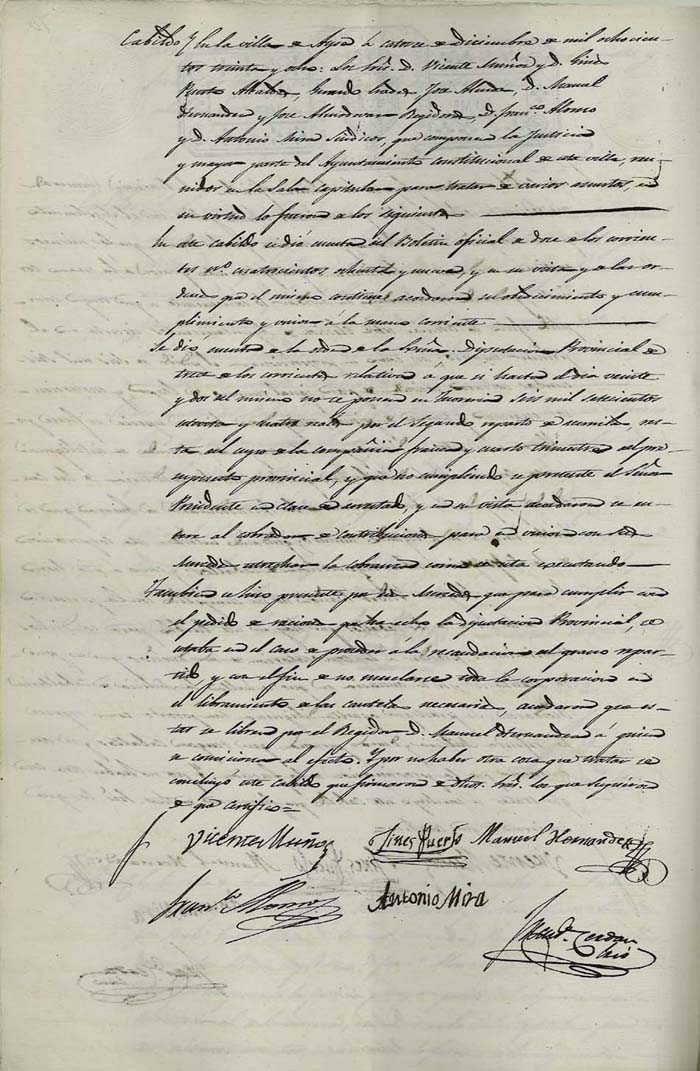 Cabildo / En la villa de Aspe a catorce de Diciembre de mil ochocien
tos treinta y ocho: Los Sres. D. Vicente Muñoz y D. Ginés
Puerto Alcaldes, Gerardo José D. Manuel
Hernandez y José Almodovar Regidores, D. Franco. Alonso
y D. Antonio Mira Sindicos, que componen la Justicia
y mayor parte del Ayuntamiento constitucional de esta villa, reu
nidos en la Sala capitular para tratar de varios asuntos, en
su virtud lo fueron a los siguientes
En este cabildo se dió cuenta del Boletin oficial de doce de los corrien
tes no. cuatrocientos ochenta y nueve, y en su vista y de las or
denes que el mismo contiene acordaron su obedecimiento y cum
plimiento y unión á la mano corriente
Se dio cuenta de la orden de la Exma. Diputacion Provincial de
trece de los corrientes relativa á que si hasta el dia veinte
y dos del mismo no se ponen en Tesoreria seis mil setecientos
y cuatro reales por el segundo reparto de semilla, res
ta del cupo de la compañia franca y cuarto trimestre del pre
supuesto provincial, y que no cumpliendo se presente el Señor
Presidente en clase de arrestado, y en su vista acordaron se en
tere al cobrador de contribuciones para en union con sus
Mercedes estrechar la cobranza como se está ejecutando
Tambien se hizo presente por sus Mercedes que para cumplir con
el pedido de raciones que ha echo la Diputacion Provincial, se
estaba en el caso de proceder á la recaudacion del grano repar
tido y con el fin de no mezclarse toda la corporacion en
el libramiento de las cautelas necesarias, acordaron que es
tas se libren por el Regidor D. Manuel Hernandez á quien
se comisiona al efecto. Y por no haber otra cosa que tratar se
concluyó este cabildo que firmaron de dhos. Sres. los que supieron
de que certifico=
Vicente Muñoz Gines Puerto Manuel Hernandez
Franco. Alonso Antonio Mira